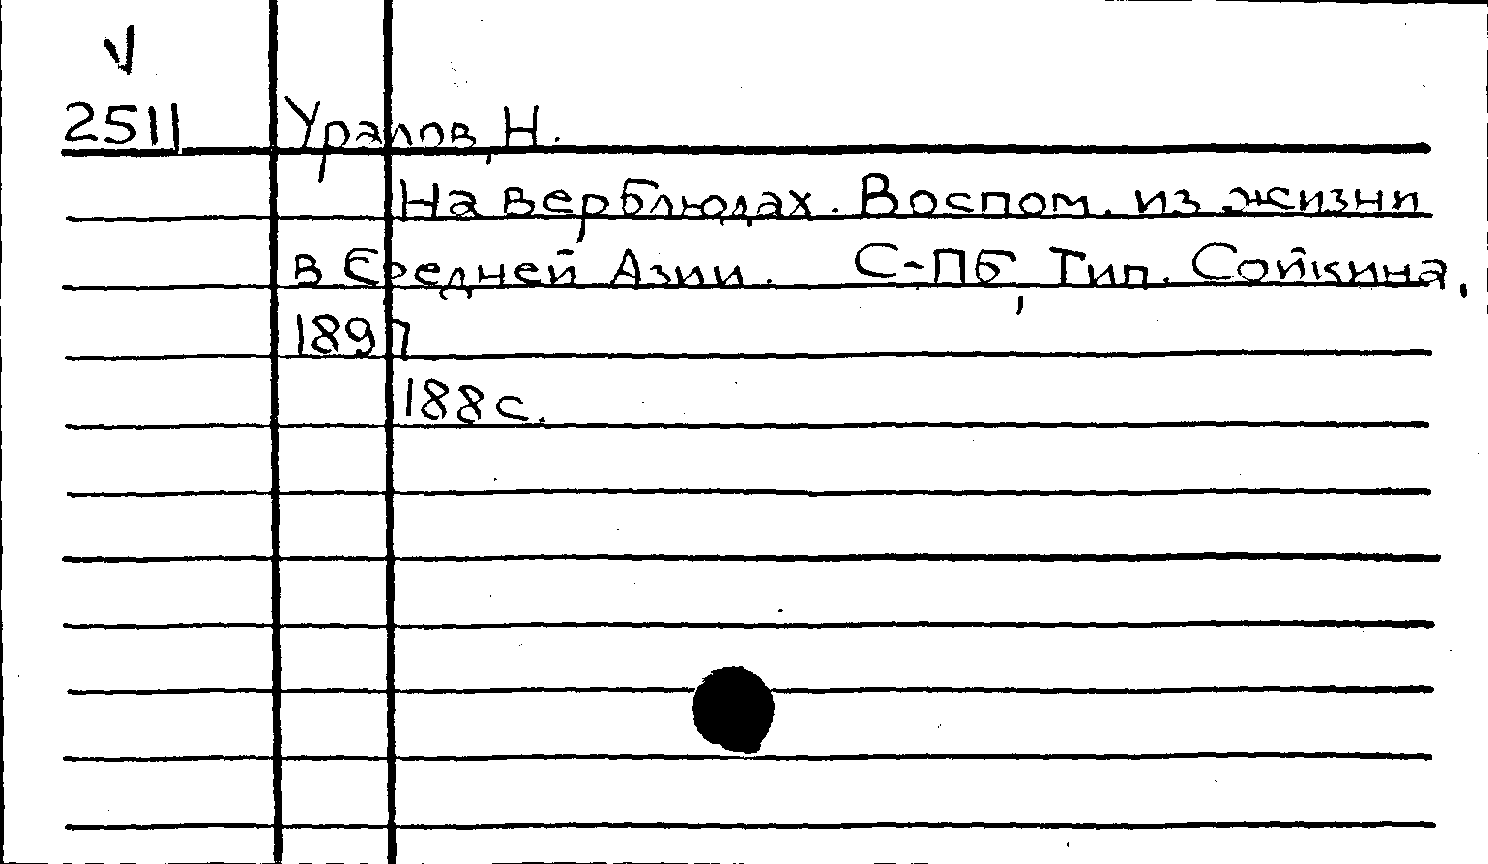 V
2511 Уралов, Н.
На верблюдах. Воспом. из жизни
в Средней Азии. С-ПБ, Тип. Сойкина,
1897
188 с.